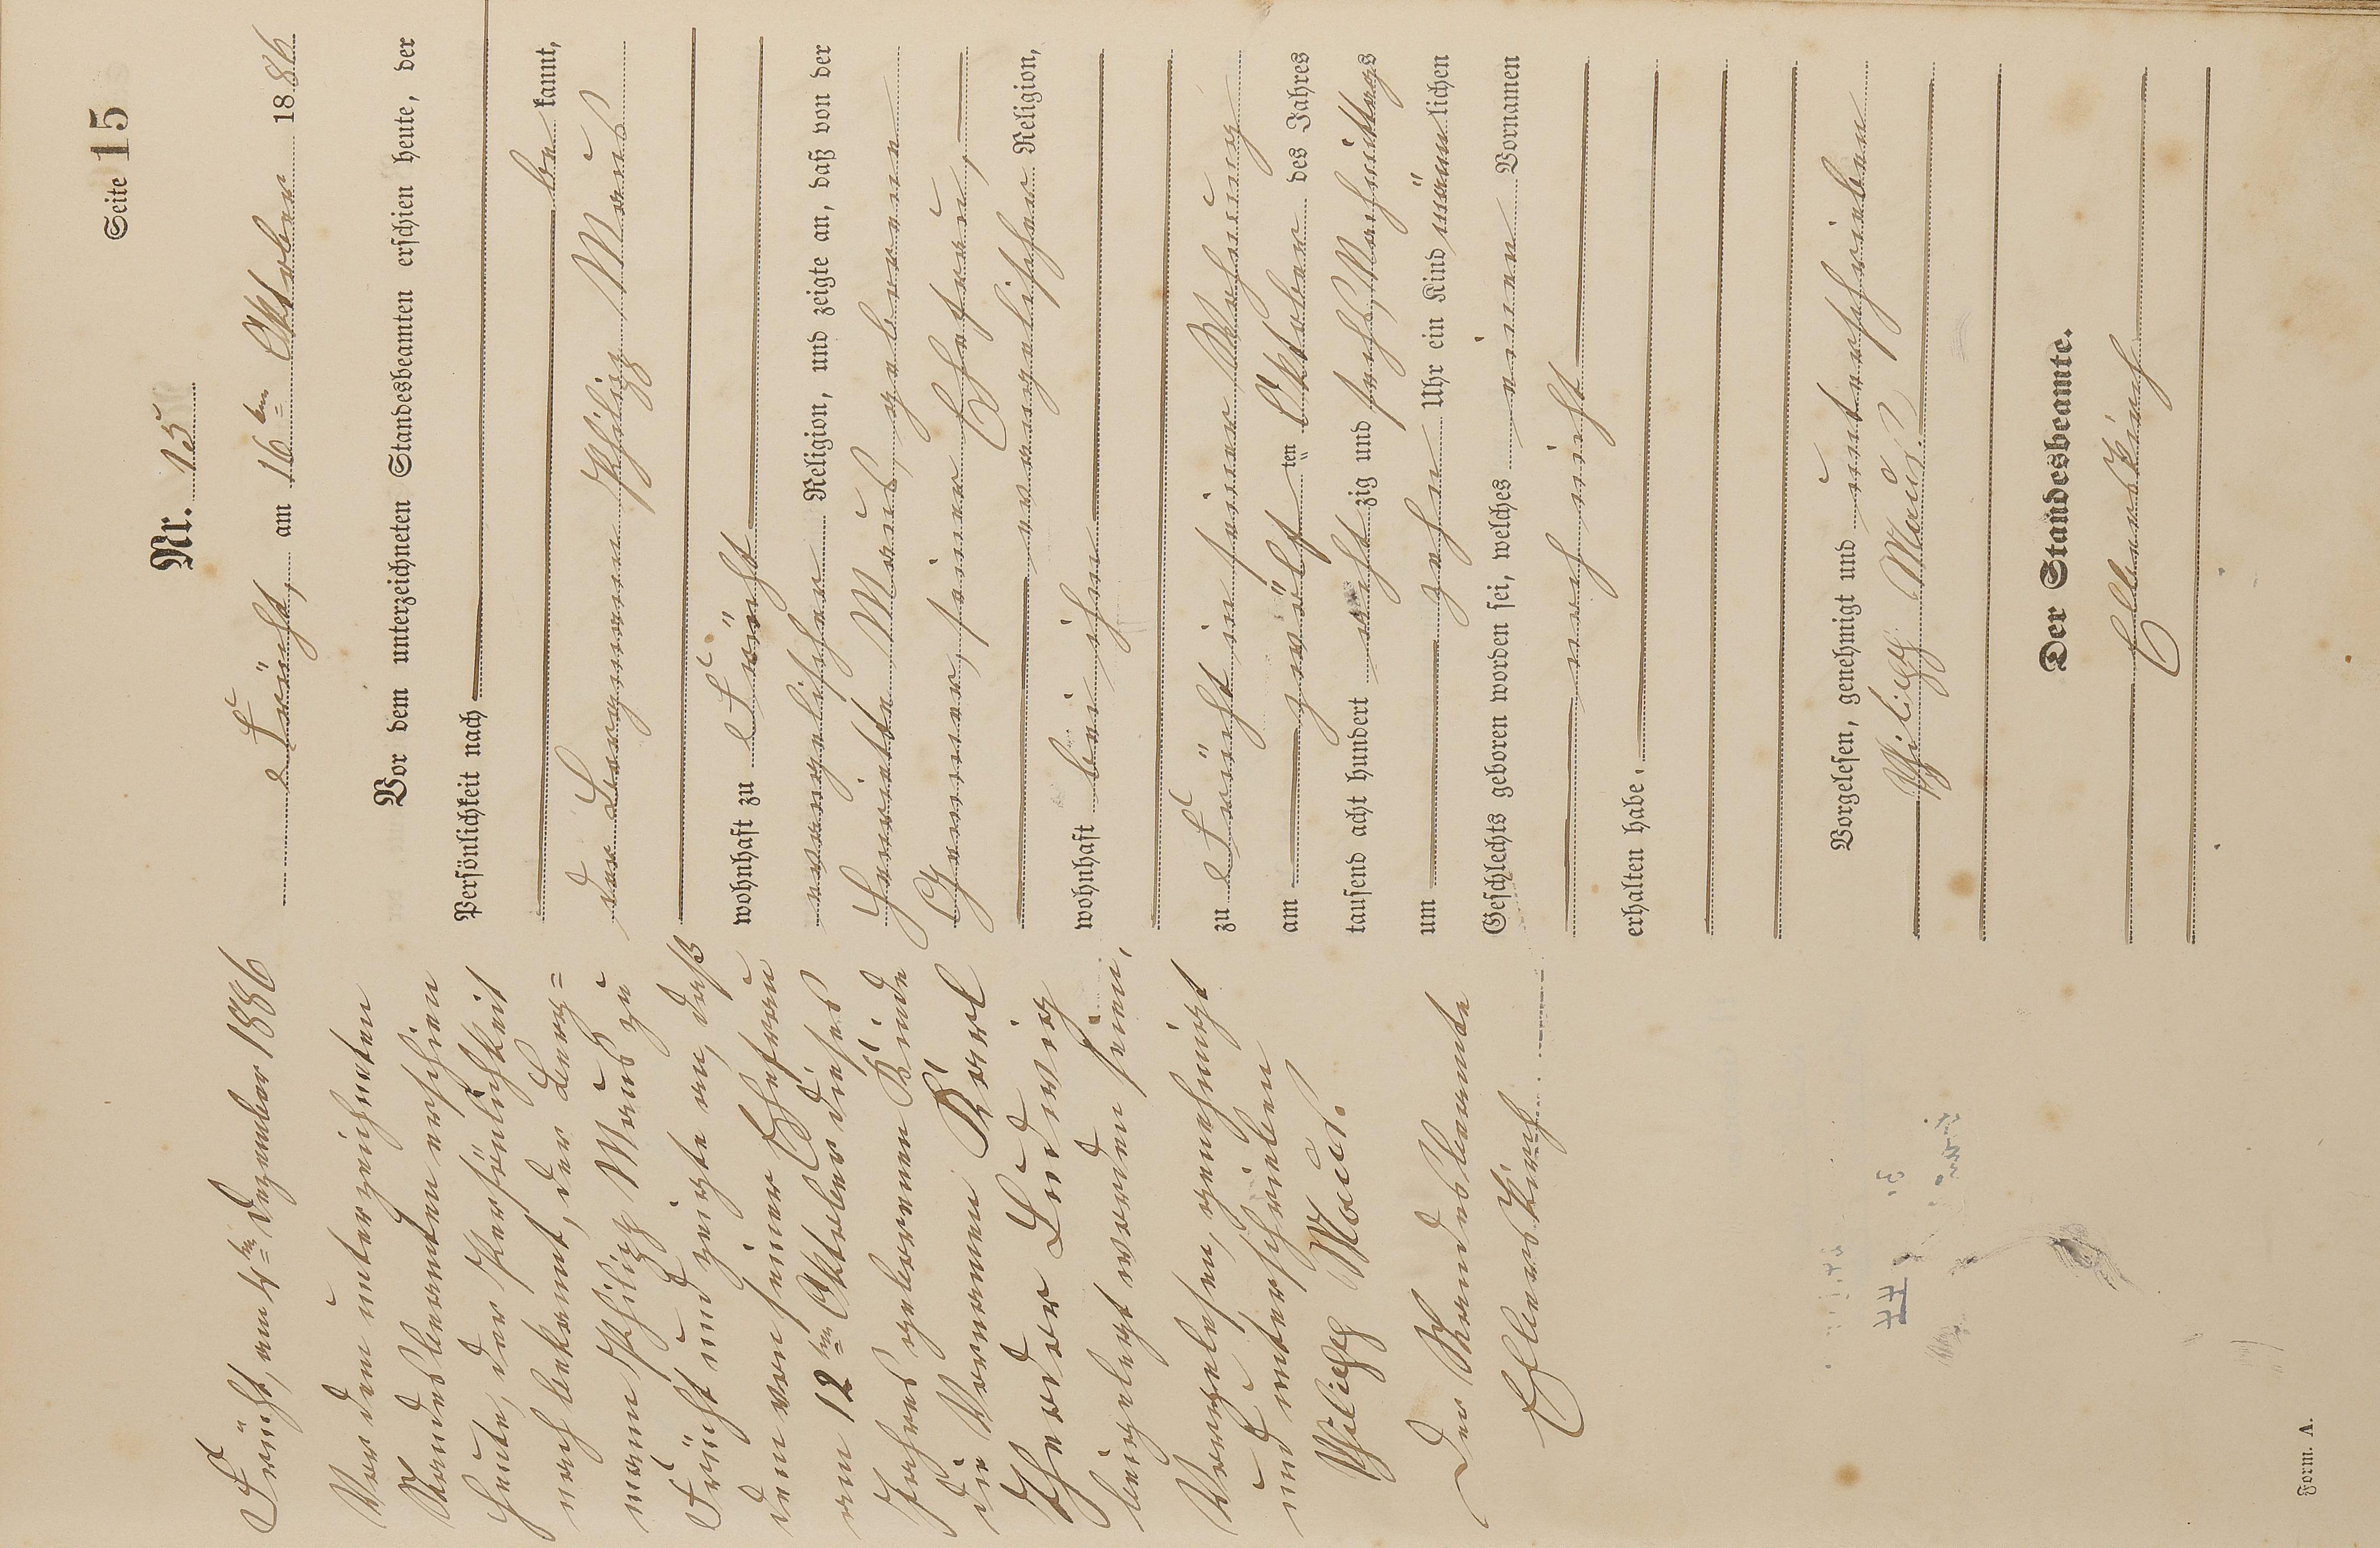 Seite 15
Nr. 15
Frücht, am 16ten Oktober 1886
Vor dem unterzeichneten Standesbeamten erschien heute, der
Persönlichkeit nach
be kannt,
der Bergmann Philipp Maus
wohnhaft zu Frücht
evangelischer Religion, und zeigte an, daß von der
Henriette Maus, geborenen
seiner Ehefrau,
evangelischer Religion,
wohnhaft bei ihm
zu Frücht in seiner Wohnung
am zwölf ten Oktober des Jahres
tausend acht hundert acht zig und sechs, Nachmittags
um zehn Uhr ein Kind männ lichen
Geschlechts geboren worden sei, welches einen Vornamen
noch nicht
erhalten habe.
Vorgelesen, genehmigt und unterschrieben
Philipp Maus.
Der Standesbeamte.
Frücht, am 4ten Dezember 1886
Vor dem unterzeichneten
Standesbeamten erschien
heute, der Persönlichkeit
nach bekannt, der Berg=
mann Philipp Maus zu
Frücht und zeigte an, daß
dem von seiner Ehefrau
am 12ten Oktober dieses
Jahres geborenen Kinde
die Vornamen Karl
Theodor Ludwig
beigelegt worden seien.
Vorgelesen, genehmigt
und unterschrieben
Philipp Maus.
Der Standesbeamte
Form. A.